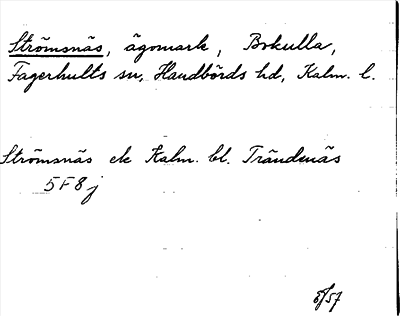 Strömsnäs, ägomark, Bokulla,
Fagerhults sn, Handbörds hd, Kalm. l.
Strömsnäs ek Kalm. bl. Trändenäs
5F8j
8/57